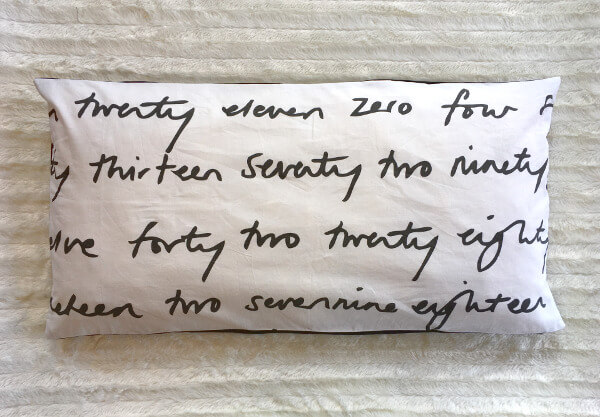 twenty eleven zero four
thirteen seventy two ninety
forty two twenty eight
two sevennine eighteen